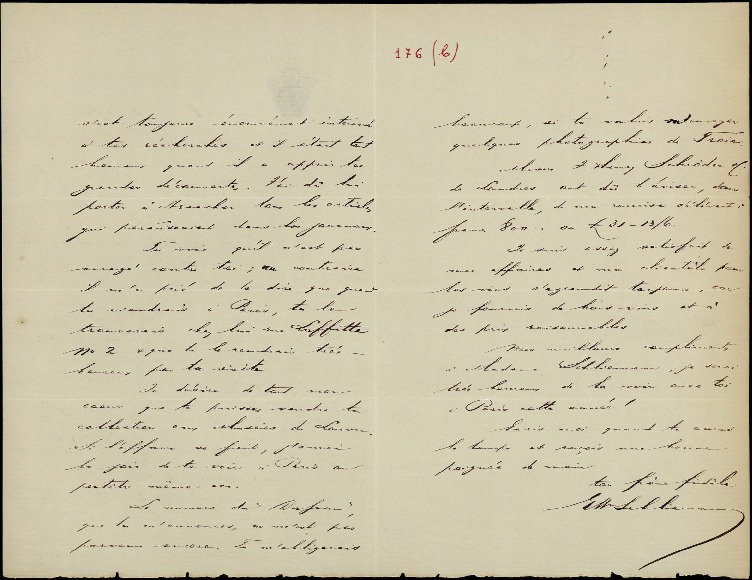 176 (b)
s'est toujours énormément intéressé
à tes recherches et il était très
heureux quand il a appris tes
grandes découvertes. J'ai dû lui
porter à tous les articles
qui paraissaient dans les journaux.
Tu vois qu'il n'est pas
contre toi; au contraire
il m'a prié de te dire que quand
tu viendrais à Paris, tu le
trouverais chez lui rue Laffitte
No 2 & que tu le rendrais très
heureux par ta visite
Je désire de tout mon
coeur que tu puisses vendre ta
collection aux du Louvre.
Si l'affaire se fait, j'aurai
la joie de te voir à Paris au
même.
Le numéro du
que tu m'annonces, ne m'est pas
parvenu encore. Tu m'obligerais
beaucoup, si tu voulais m'envoyer
quelques photographies de Troie.
Messrs J Henry Schröder &
de Londres ont dû t'aviser, dans
l'intervalle, de ma remise s'élevant à
francs 800.- ou £ 31-13/6.
Je suis assez satisfait de
mes affaires et ma clientèle
s'agrandit toujours, car
je fournis de bons vins et à
des prix raisonnables
Mes meilleurs compliments
à Madame Schliemann, je serai
très heureux de la voir avec toi
à Paris cette année!
Ecris moi quand tu auras
le temps et reçois une bonne
poignée de main
ton frère fidèle
Schliemann